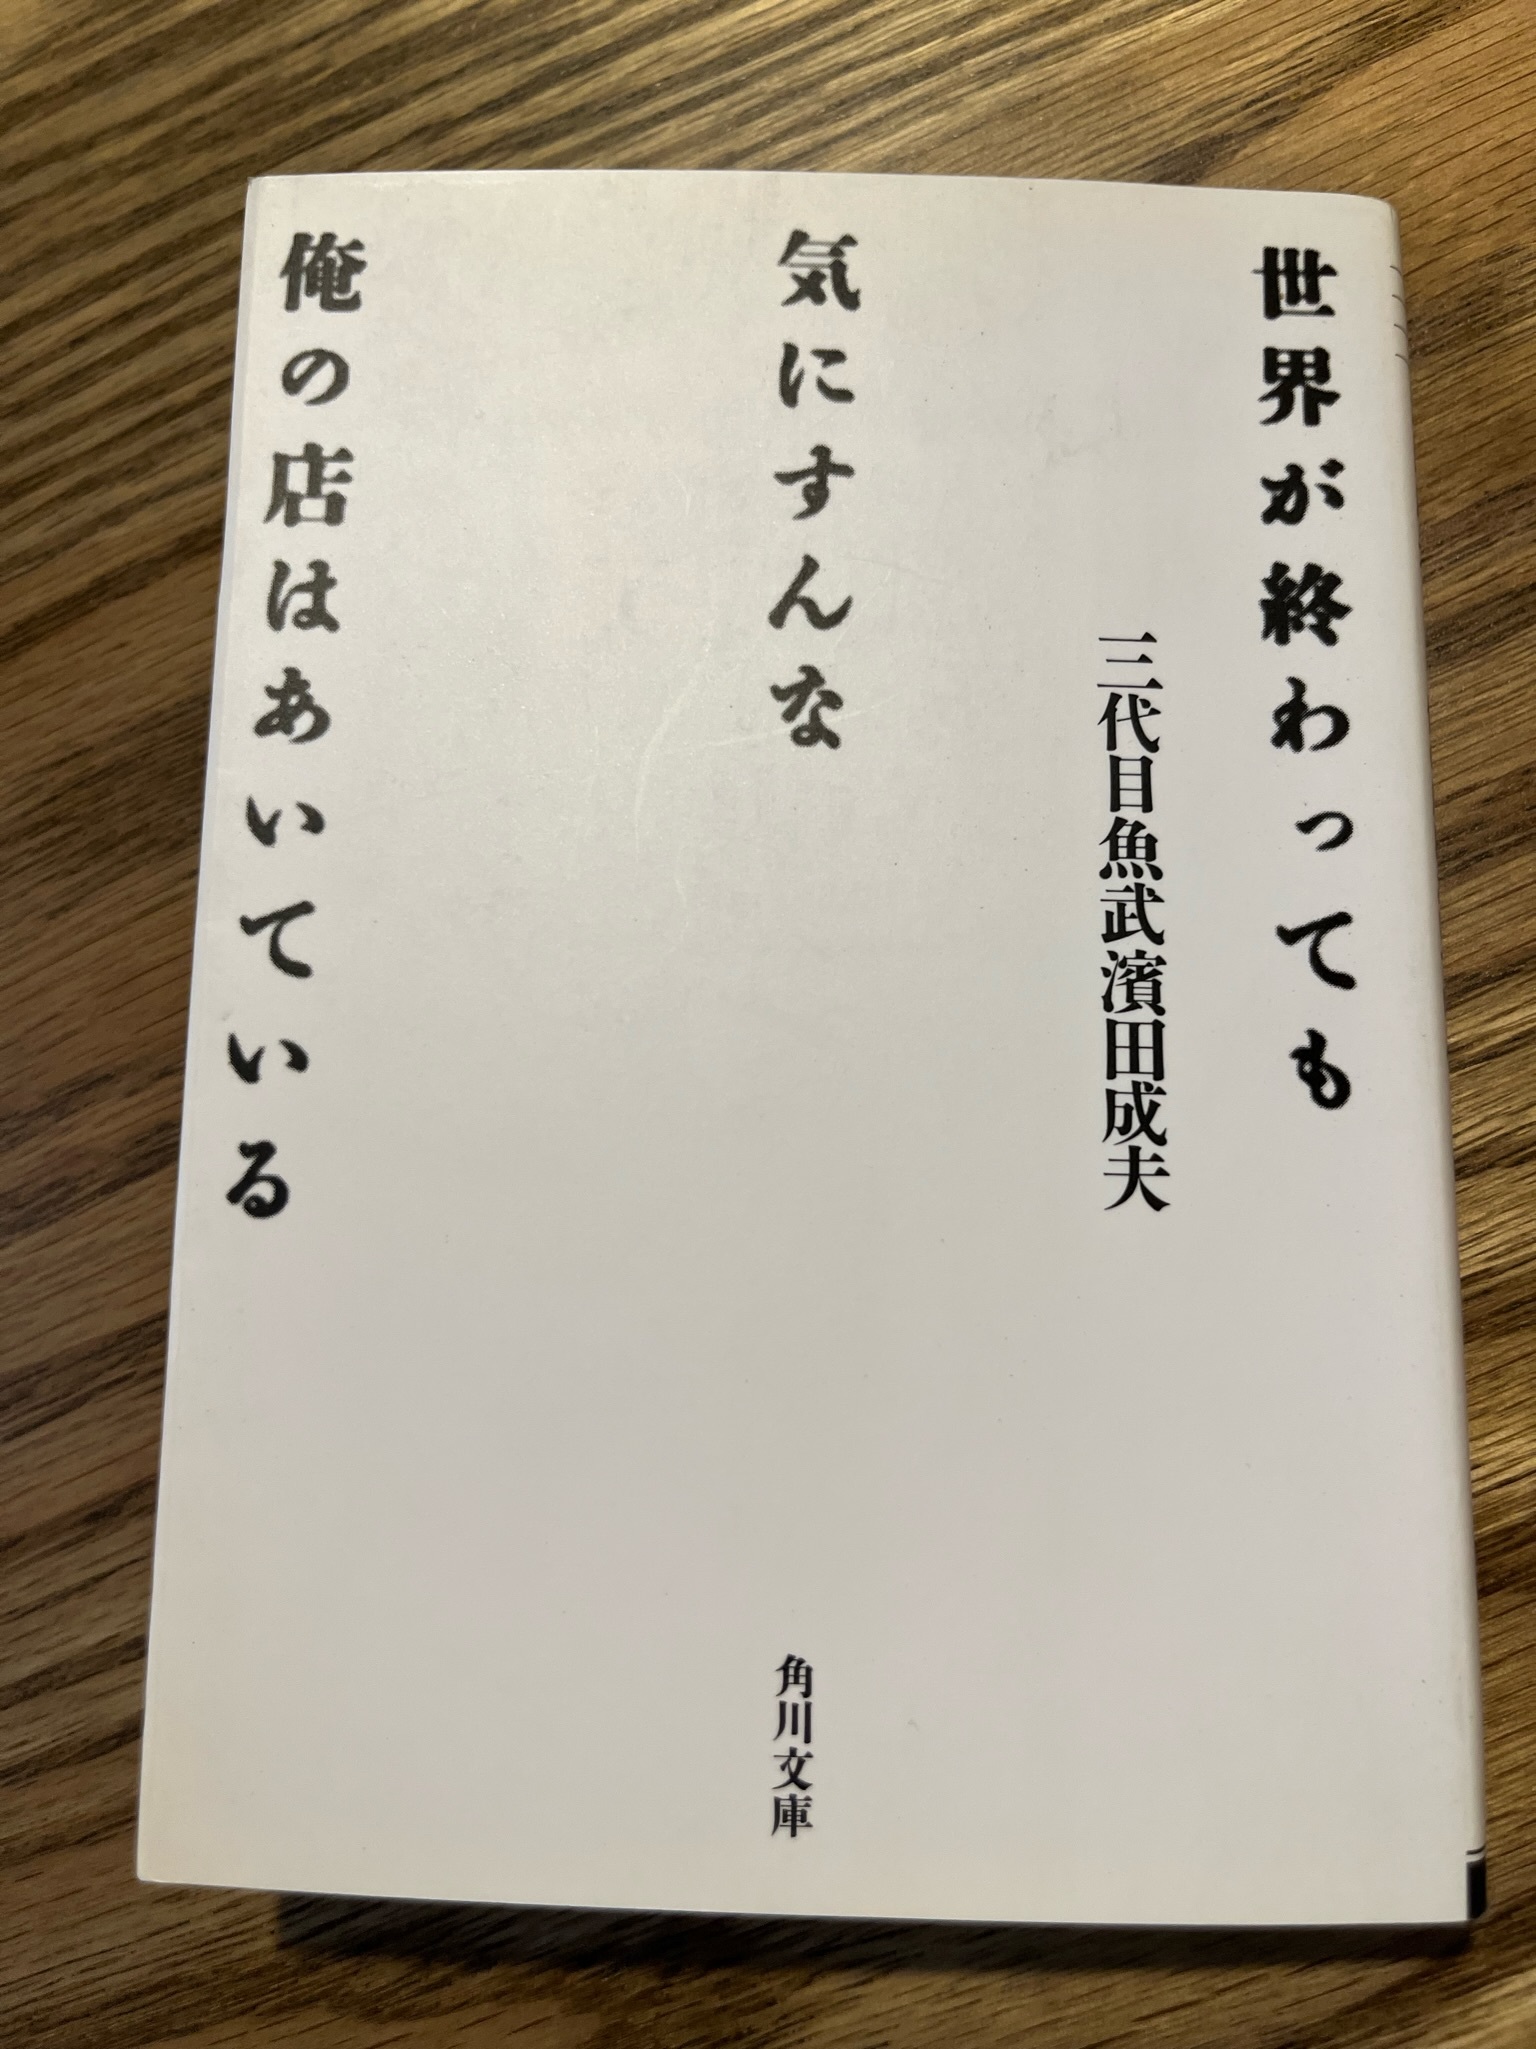 世界が終わっても
三代目魚武濱田成夫
気にすんな
俺の店はあいている
角川文庫